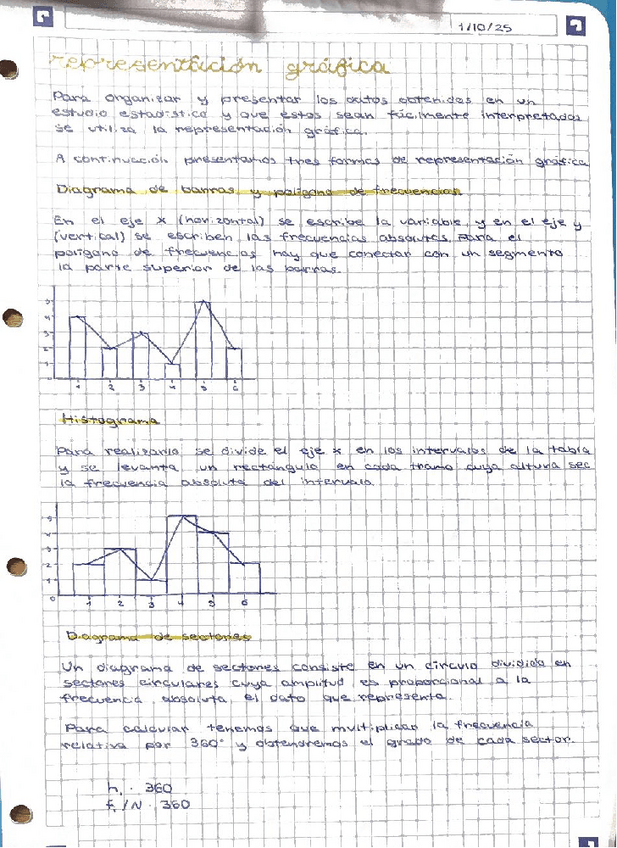 1/10/25
representación gráfica
Para organizar y presentar los datos obtenidos en un
estudio estadístico y que estos sean fácilmente interpretados
se utiliza la representación gráfica.
A continuación presentamos tres formas de representación gráfica
Diagrama de barras y polígono de frecuencias
En el eje x (horizontal) se escribe la variable, y en el eje y
(vertical) se escriben las frecuencias absolutas. Para el
polígono de frecuencias hay que conectar con un segmento
la parte superior de las barras.
5
4
3
2
1
1 2 3 4 5 6
Histograma
Para realizarlo se divide el eje x en los intervalos de la tabla
y se levanta un rectángulo en cada tramo cuya altura sea
la frecuencia absoluta del intervalo.
5
4
3
2
1
0
1 2 3 4 5 6
Diagrama de sectores
Un diagrama de sectores consiste en un círculo dividido en
sectores circulares cuya amplitud es proporcional a la
frecuencia absoluta el dato que representa.
Para calcular tenemos que multiplicar la frecuencia
relativa por 360° y obtendremos el grado de cada sector.
hᵢ · 360
fᵢ/N · 360